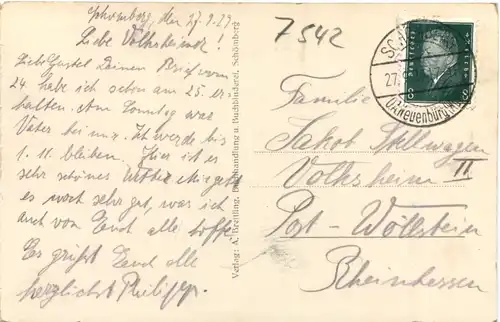 Schömberg, den 27.9.29
Liebe Volksheimer!
Liebe Gustel Deinen Brief vom
24. habe ich schon am 25. er-
halten. Am Sonntag war
Vater bei mir. Ich werde bis
1.11. bleiben. Hier ist es
sehr schönes Wetter. Mir geht
es noch sehr gut, was ich
auch von Euch alle hoffe.
Es grüßt Euch alle
herzlichst Philipp.
Verlag: A. Breitling, Buchhandlung u. Buchbinderei, Schömberg
7542
SCH
27.
O.A. Neuenbürg
Deutsches Reich
8 8
Familie
Jakob Stellwagen II
Volksheim
Post-Wöllstein
Rheinhessen